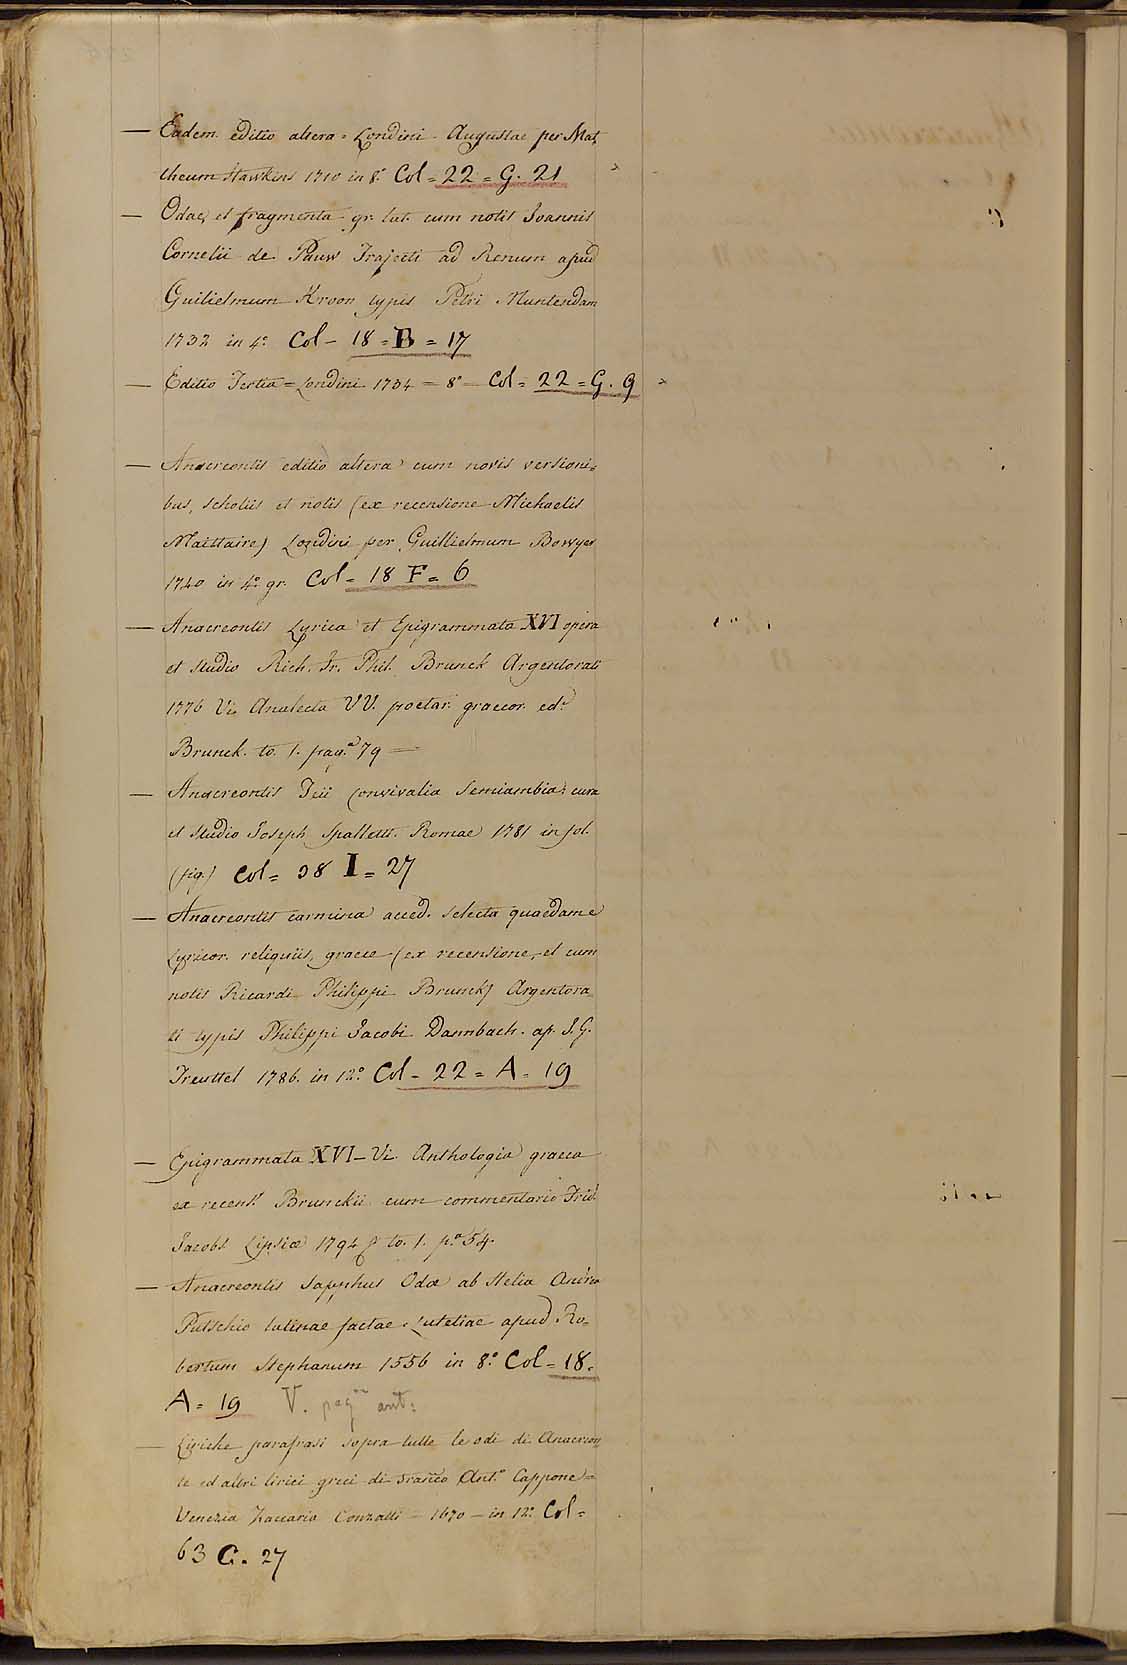 — Eadem editio altera = Londini Augustae per Mat,
theum Hawkins 1710 in 8.° Col = 22 = G. 21
— Odae, et fragmenta gr. lat. cum notis Joannis
Cornelii de Pauw Trajecti ad Renum apud
Guilielmum Kroon typis Petri Muntendam
1732 in 4.° Col – 18 = B = 17
— Editio Tertia = Londini 1734 = 8° – Col = 22 = G. 9
— Anacreontis editio altera cum novis versioni=
bus, scholiis et notis (ex recensione Michaelis
Maittaire) Londini per Guillielmum Bowyer
1740 in 4.° gr. Col = 18 F = 6
— Anacreontis Lyrica et Epigrammata XVI opera
et studio Rich. Fr. Phil. Brunck Argentorati
1776 Vi. Analecta VV. poetar. graecor. ed.e
Brunck. to. 1. pag.a 79 —
— Anacreontis Teii Convivalia Semiambia: cura
et studio Joseph Spalletti. Romae 1781 in fol.
(fig.) Col = 38 I = 27
— Anacreontis carmina acced. selecta quaedam e
Lyricor. reliquiis, graece (ex recensione, et cum
notis Ricardi Philippi Brunck) Argentora
ti typis Philippi Jacobi Dannbach. ap. J. G.
Treuttel 1786. in 12.° Col – 22 = A – 19
— Epigrammata XVI – Vi. Anthologia graeca
ex recens.e Brunckii cum commentario Frid.
Jacobs Lipsiae 1794 to. 1. p.a 54.
— Anacreontis Sapphus Odae ab Helia Andrea
Putschio latinae factae. Lutetiae apud Ro=
bertum Stephanum 1556 in 8.° Col = 18 =
A = 19 V. pag.na ant:
— Liriche parafrasi sopra tutte le odi di Anacreon
te ed altri lirici greci di Franco Ant.o Cappone =
Venezia Zaccaria Conzatti – 1670 – in 12.° Col =
63 G. 27